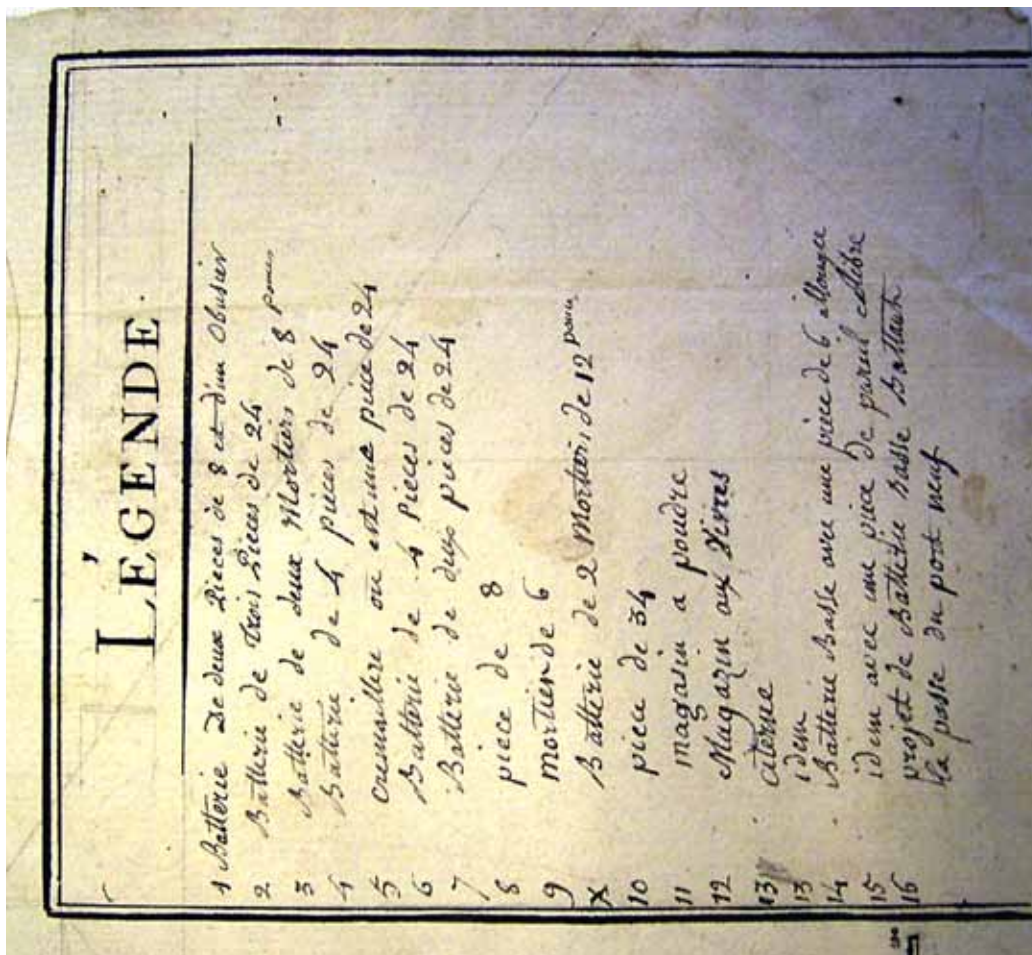 LÉGENDE
1 Batterie De deux Pieces de 8 et d'un Obusier
2 Batterie de trois Pieces de 24
3 Batterie de deux Mortiers de 8 pouces
4 Batterie de 4 pieces de 24
5 cremaillere où est une piece de 24
6 Batterie de 4 Pieces de 24
7 Batterie de deux pieces de 24
8 piece de 8
9 mortier de 6
X Batterie de 2 Mortiers de 12 pouces
10 piece de 34
11 magasin a poudre
12 Magazin aux Vivres
13 citerne
13 idem
14 Batterie Basse avec une piece de 6 allongée
15 idem avec une piece de pareil calibre
16 projet de Batterie basse battant
la passe du port neuf